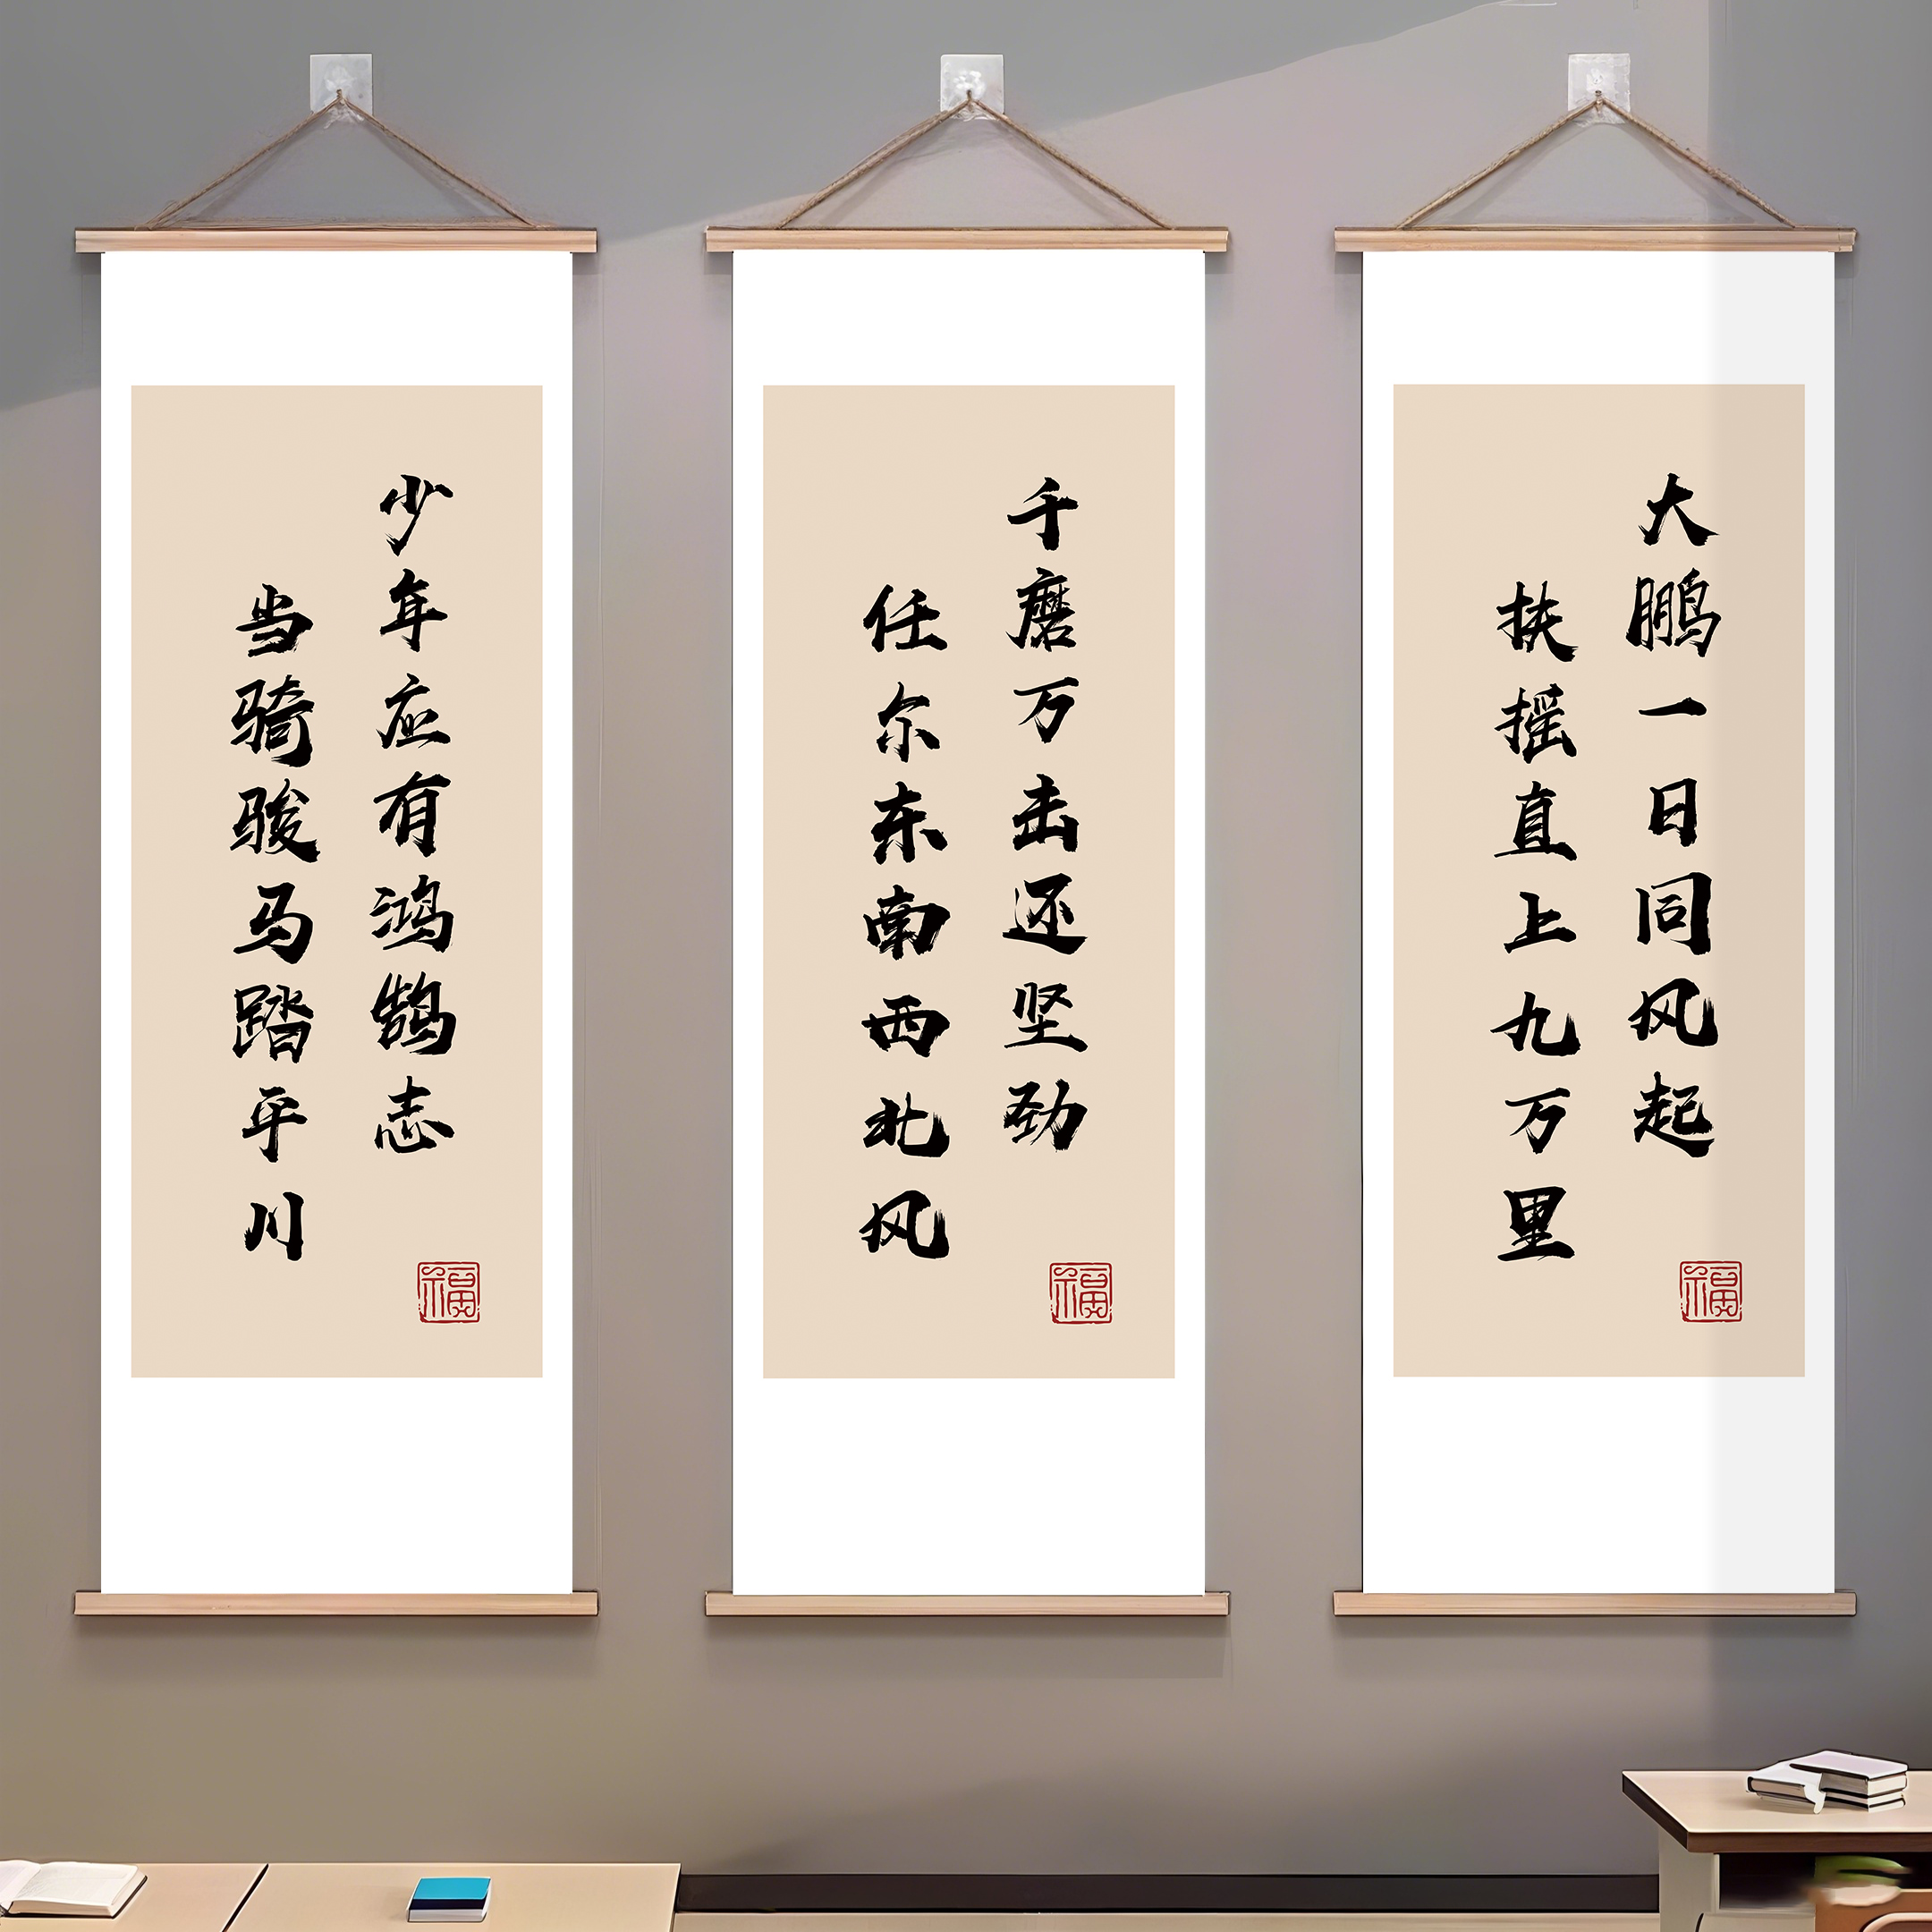 少年应有鸿鹄志
当骑骏马踏平川
福
千磨万击还坚劲
任尔东南西北风
福
大鹏一日同风起
扶摇直上九万里
福